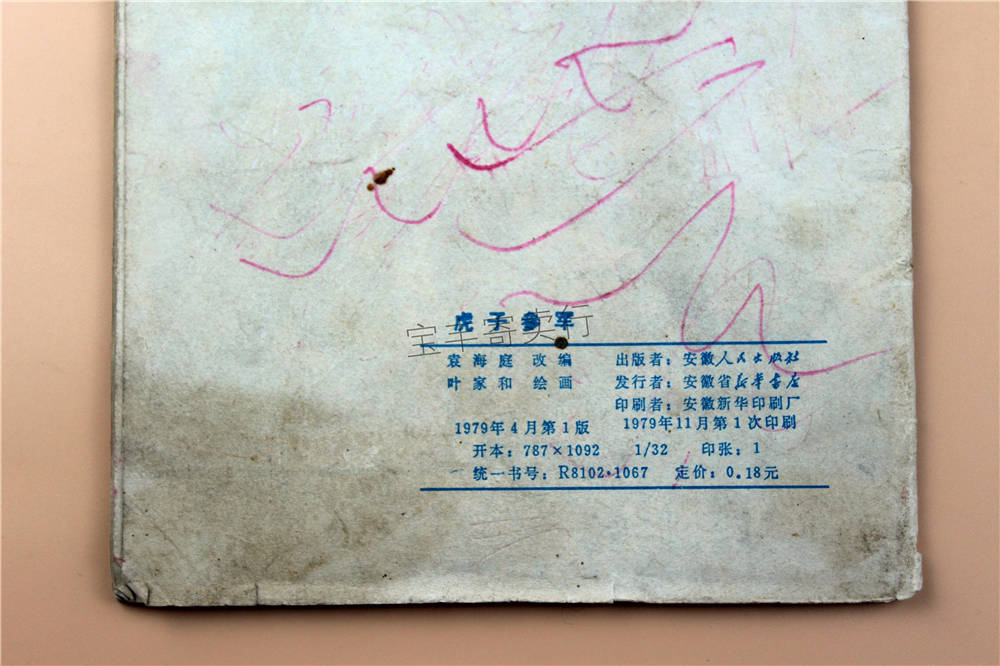 虎子参军
宝丰寄卖行
袁海庭 改编 出版者：安徽人民出版社
叶家和 绘画 发行者：安徽省新华书店
印刷者：安徽新华印刷厂
1979年4月第1版 1979年11月第1次印刷
开本：787×1092 1/32 印张：1
统一书号：R8102·1067 定价：0.18元